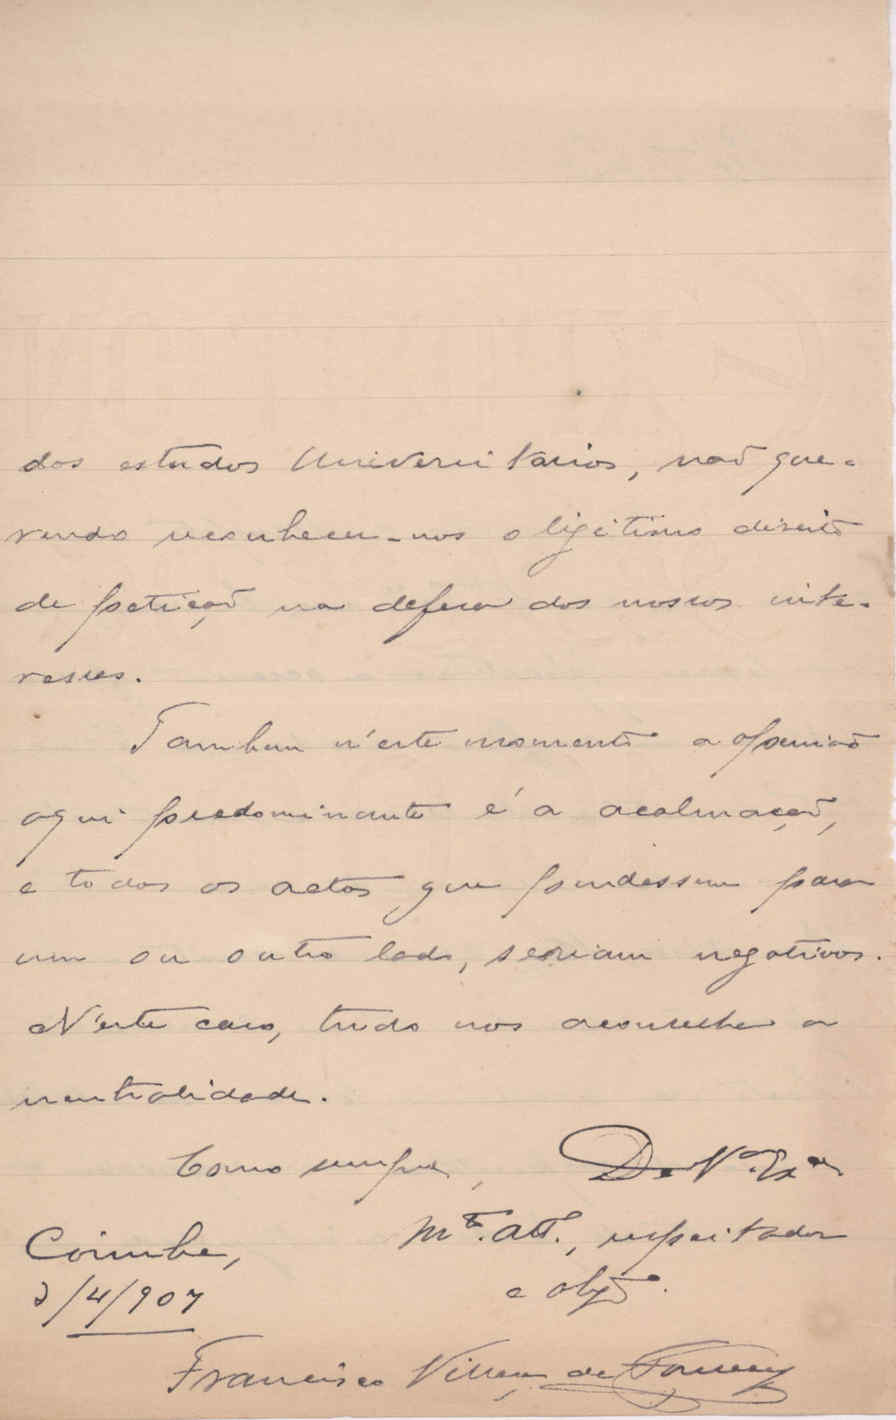 dos estudos Universitarios, naõ que-
rendo reconhecer-nos o ligitimo direito
de petiçaõ na defesa dos nossos inte-
resses.
Tambem n'este momento a opiniaõ
aqui predominante é a acalmaçaõ,
e todos os actos que pendessem para
um ou outro lado, seriam negativos.
N'este caso, tudo nos aconselha a
neutralidade.
Como sempre, De V.ª Ex.ª
Mt.º att.º, respeitador
Coimbra,
e obg.do
/4/907
Francisco Villaça da Fonseca